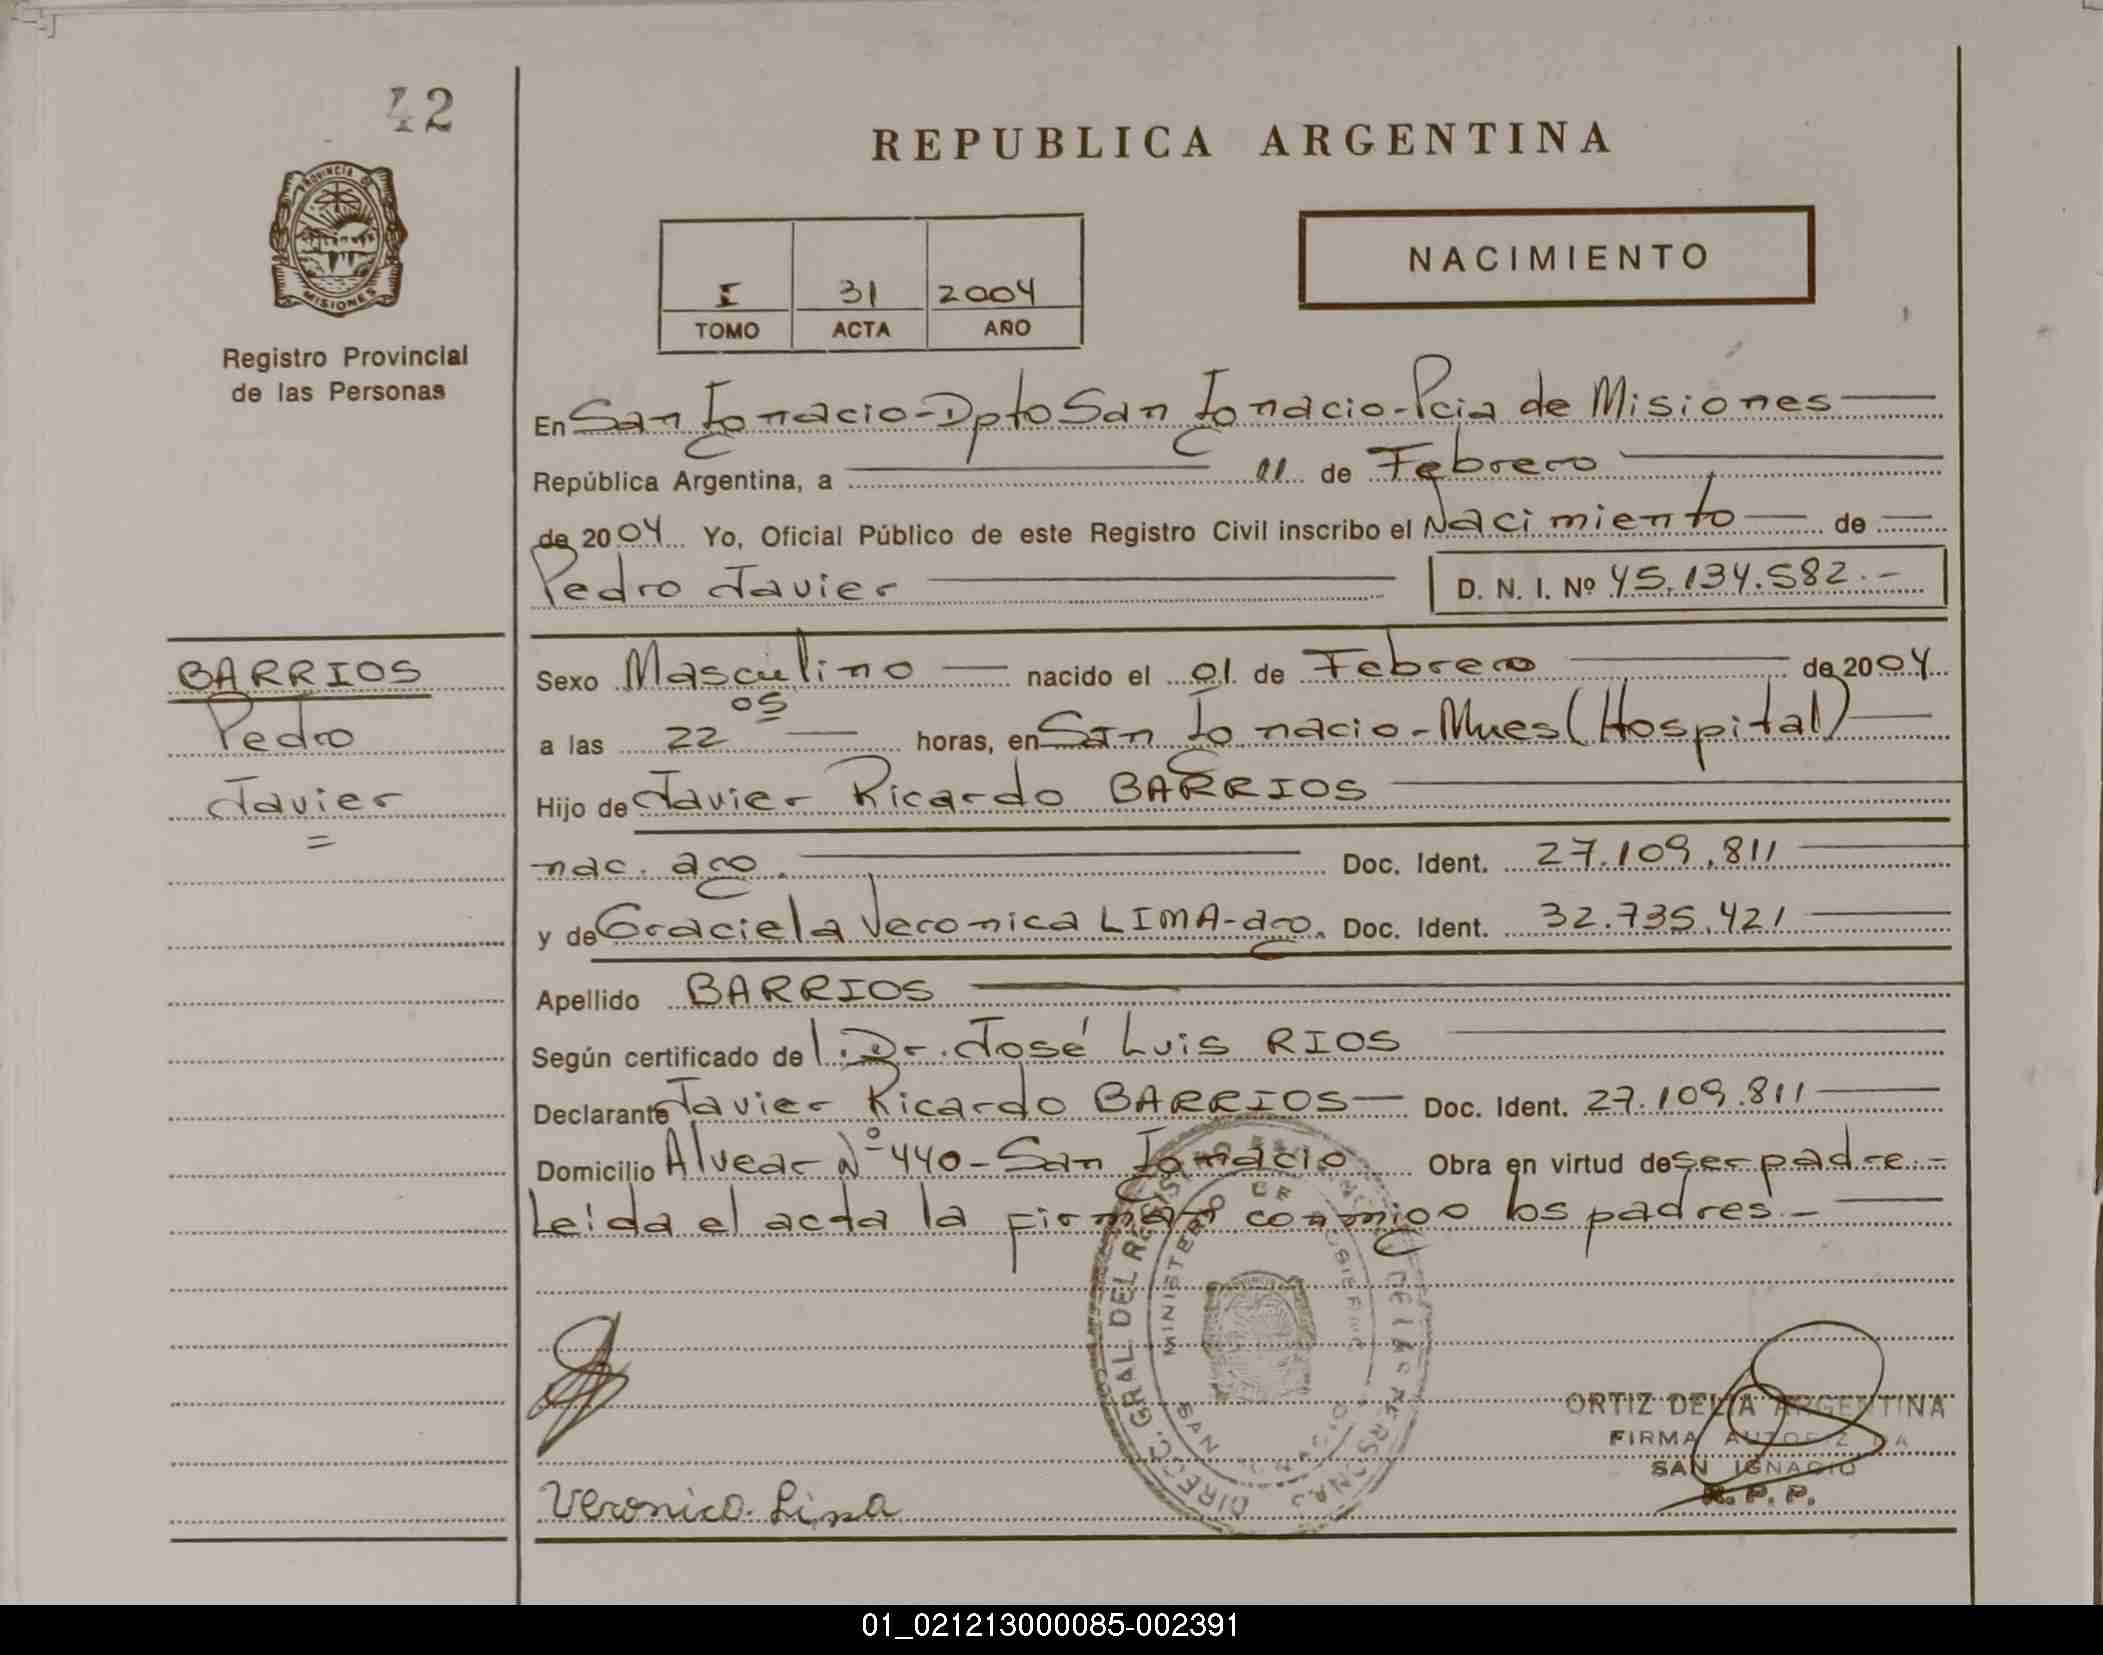 42
PROVINCIA DE
MISIONES
Registro Provincial
de las Personas
REPUBLICA ARGENTINA
I 31 2004
TOMO ACTA AÑO
NACIMIENTO
En San Ignacio-Dpto San Ignacio-Pcia de Misiones
República Argentina, a 11 de Febrero
de 2004 Yo, Oficial Público de este Registro Civil inscribo el Nacimiento de
Pedro Javier D. N. I. Nº 45.134.582.-
BARRIOS
Pedro
Javier
=
Sexo Masculino nacido el 01 de Febrero de 2004
a las 22 05 horas, en San Ignacio-Mnes (Hospital)
Hijo de Javier Ricardo BARRIOS
nac. arg. Doc. Ident. 27.109.811
y de Graciela Veronica LIMA-arg. Doc. Ident. 32.735.421
Apellido BARRIOS
Según certificado de l. Dr. José Luis RIOS
Declarante Javier Ricardo BARRIOS Doc. Ident. 27.109.811
Domicilio Alvear Nº 440-San Ignacio Obra en virtud de ser padre.-
Leida el acta la firman conmigo los padres.-
DIREC. GRAL DEL DE LAS PERSONAS
MINISTERIO DE
SAN IGNACIO
Veronica Lima
ORTIZ DELIA ARGENTINA
FIRMA AUTORIZADA
SAN IGNACIO
R. P. P.
01_021213000085-002391